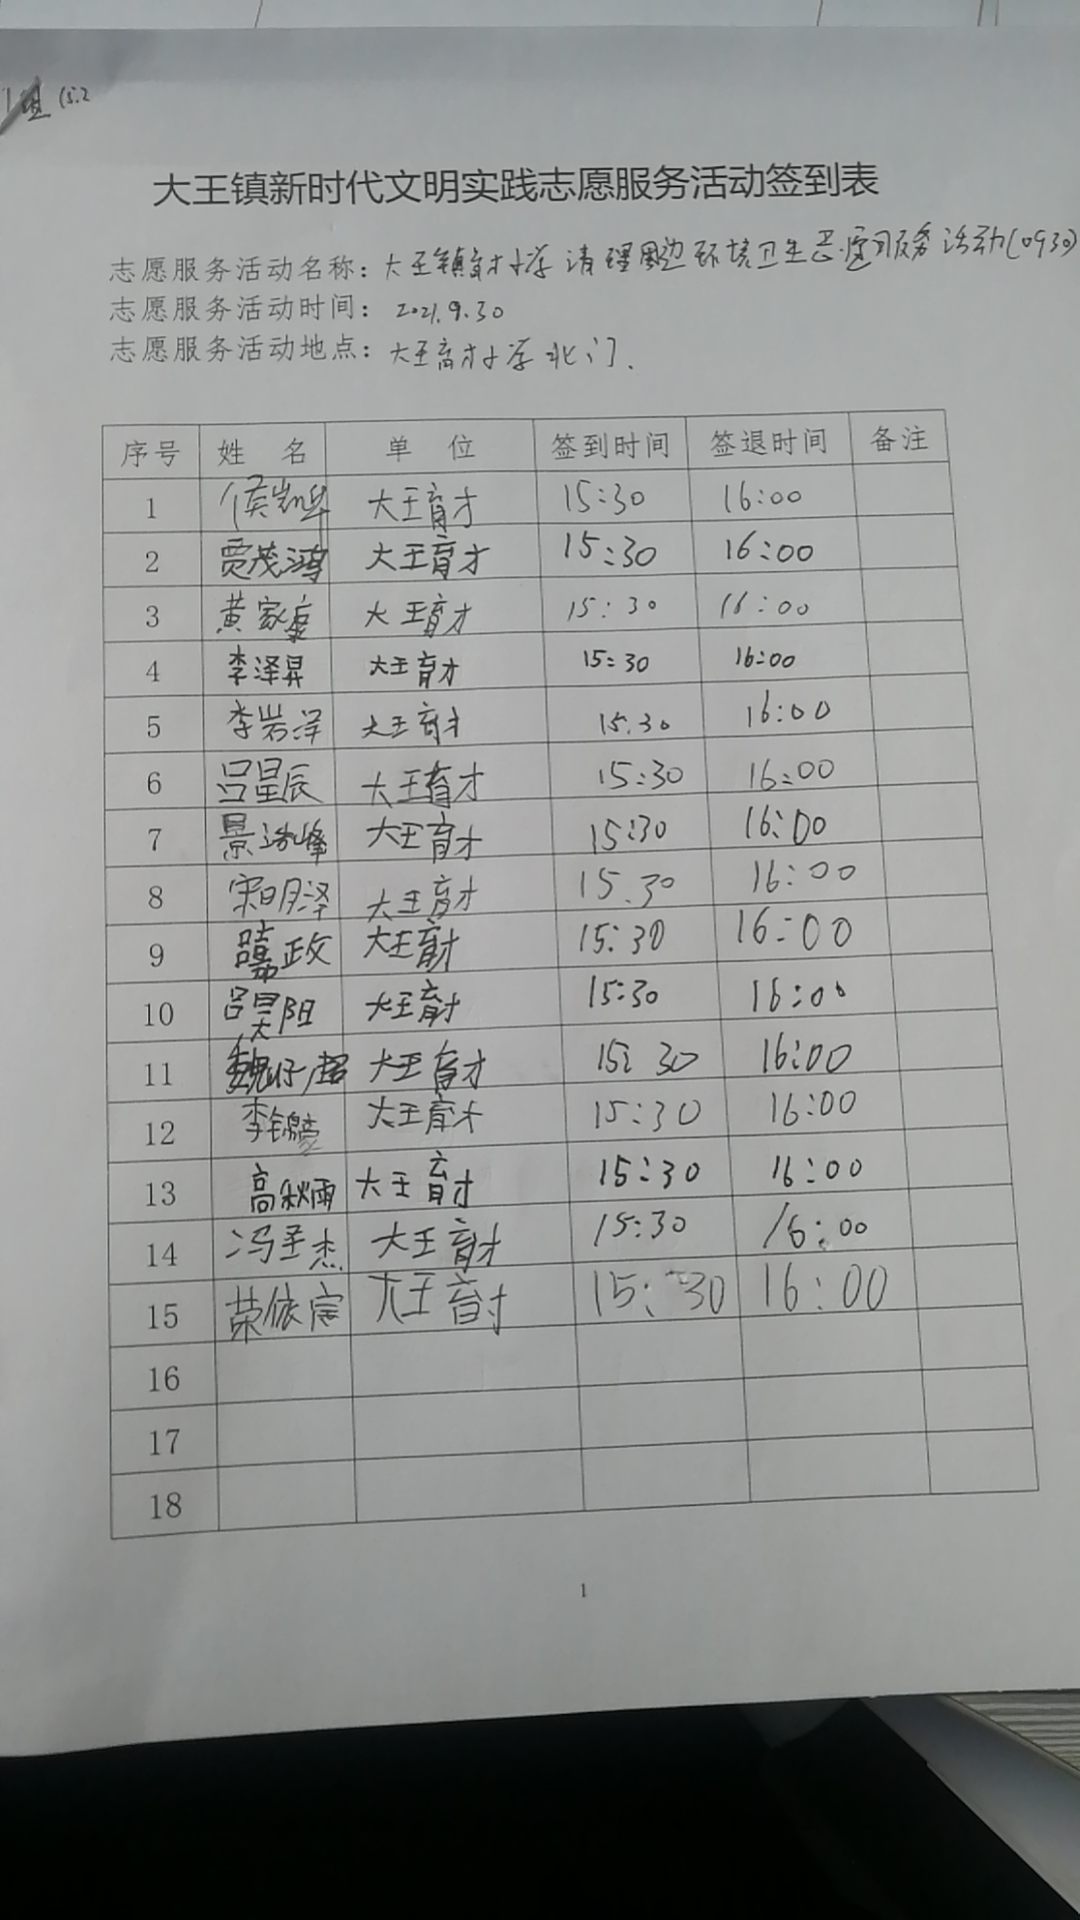 15.2
大王镇新时代文明实践志愿服务活动签到表
志愿服务活动名称：大王镇育才小学清理周边环境卫生志愿服务活动(0930)
志愿服务活动时间：2021.9.30
志愿服务活动地点：大王育才小学北门.
序号 姓 名 单 位 签到时间 签退时间 备注
1 侯凯华 大王育才 15:30 16:00
2 贾茂鸿 大王育才 15:30 16:00
3 黄家 大王育才 15:30 16:00
4 李泽昇 大王育才 15:30 16:00
5 李岩泽 大王育才 15.30 16:00
6 吕星辰 大王育才 15:30 16:00
7 景峰 大王育才 15:30 16:00
8 宋明泽 大王育才 15.30 16:00
9 政 大王育才 15:30 16:00
10 吕昊阳 大王育才 15:30 16:00
11 魏仔超 大王育才 15:30 16:00
12 李锦豪 大王育才 15:30 16:00
13 高秋雨 大王育才 15:30 16:00
14 冯圣杰 大王育才 15:30 16:00
15 荣依 大王育才 15:30 16:00
16
17
18
1